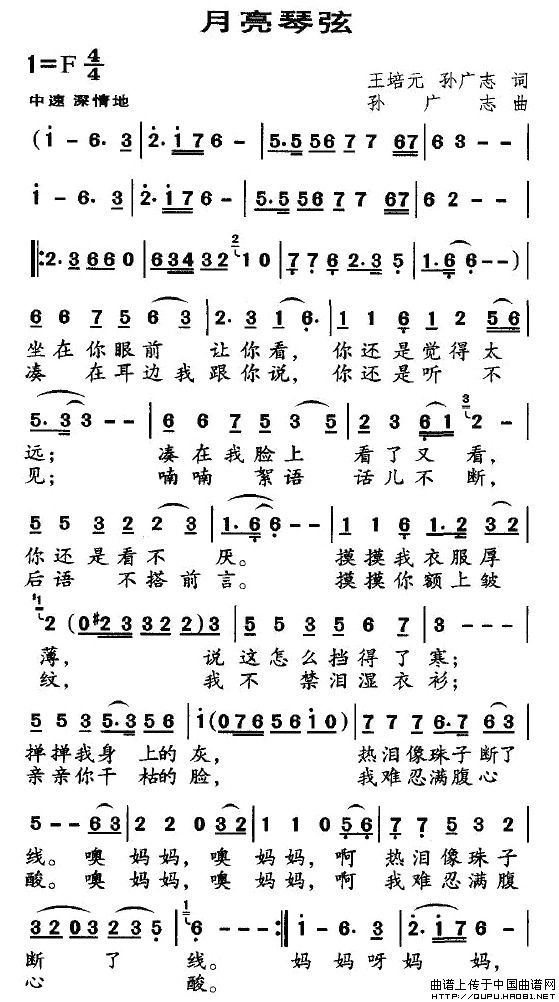 月亮琴弦
1=F 4/4
王培元 孙广志 词
中速 深情地
孙 广 志 曲
(i - 6. 3 | 2. i 7 6 - | 5.5 5 5 6 7 7 6 7 | 6 3 - - |
i - 6. 3 | 2. i 7 6 - | 5.5 5 5 6 7 7 6 7 | 6 2 - - |
‖: 2. 3 6 6 0 | 6 3 4 3 2 1 0 | 7 7 6 2. 3 5 | 1. 6 6 - - )
6 6 7 5 6 3 | 2. 3 1 6. | 1 1 6 1 2 5 6 |
坐在你眼前 让你看, 你还是觉得太
凑 在耳边我跟你说, 你还是听 不
5. 3 3 - - | 6 6 7 5 3 5 | 2 3 6 1 2 - |
远; 凑在我脸上 看了又看,
见; 喃喃 絮语 话儿不断,
5 5 3 2 2 3 | 1. 6 6 - - | 1 1 6 1. 2 3 2 |
你还是看不 厌。 摸摸我衣服厚
后语 不搭前言。 摸摸你额上皱
2 (0 #2 3 3 2 2) 3 | 5 5 3 5 6 7 | 3 - - - |
薄, 说这怎么挡得了寒;
纹, 我不 禁泪湿衣衫;
5 5 3 5. 3 5 6 | i (0 7 6 5 6 i 0) | 7 7 7 6. 7 6 3 |
掸掸我身 上的灰, 热泪像珠子断了
亲亲你干 枯的脸, 我难忍满腹心
5 - - 6 3 | 2 2 0 3 2 | 1 1 0 5 6 | 7 7 5 3 2 |
线。噢妈妈,噢妈妈,啊 热泪像珠子
酸。噢妈妈,噢妈妈,啊 我难忍满腹
3 2 0 3 2 3 5 | 6 - - :‖ i - 6. 3 | 2. i 7 6 - |
断 了 线。 妈妈呀妈 妈,
心 酸。
曲谱上传于中国曲谱网
HTTP://QUPU.HAO81.NET